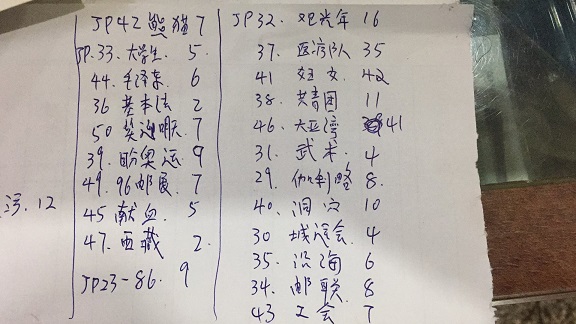 JP42 熊猫 7
JP.33. 大学生. 5.
44. 毛泽东. 6
36 基本法 2
50 笑迎明天. 7
39. 盼奥运. 9
49. 96邮展. 7
12
45 献血. 5
47. 西藏. 2.
JP23-86. 9
JP32. 观光年 16
37. 医疗队 35
41 妇女 42
38. 共青团 11
46. 大亚湾 41
31. 武术 4
29. 伽利略 8.
40. 洞穴 10
30 城运会 4
35. 沿海 6
34. 邮联 8
43 工会 7